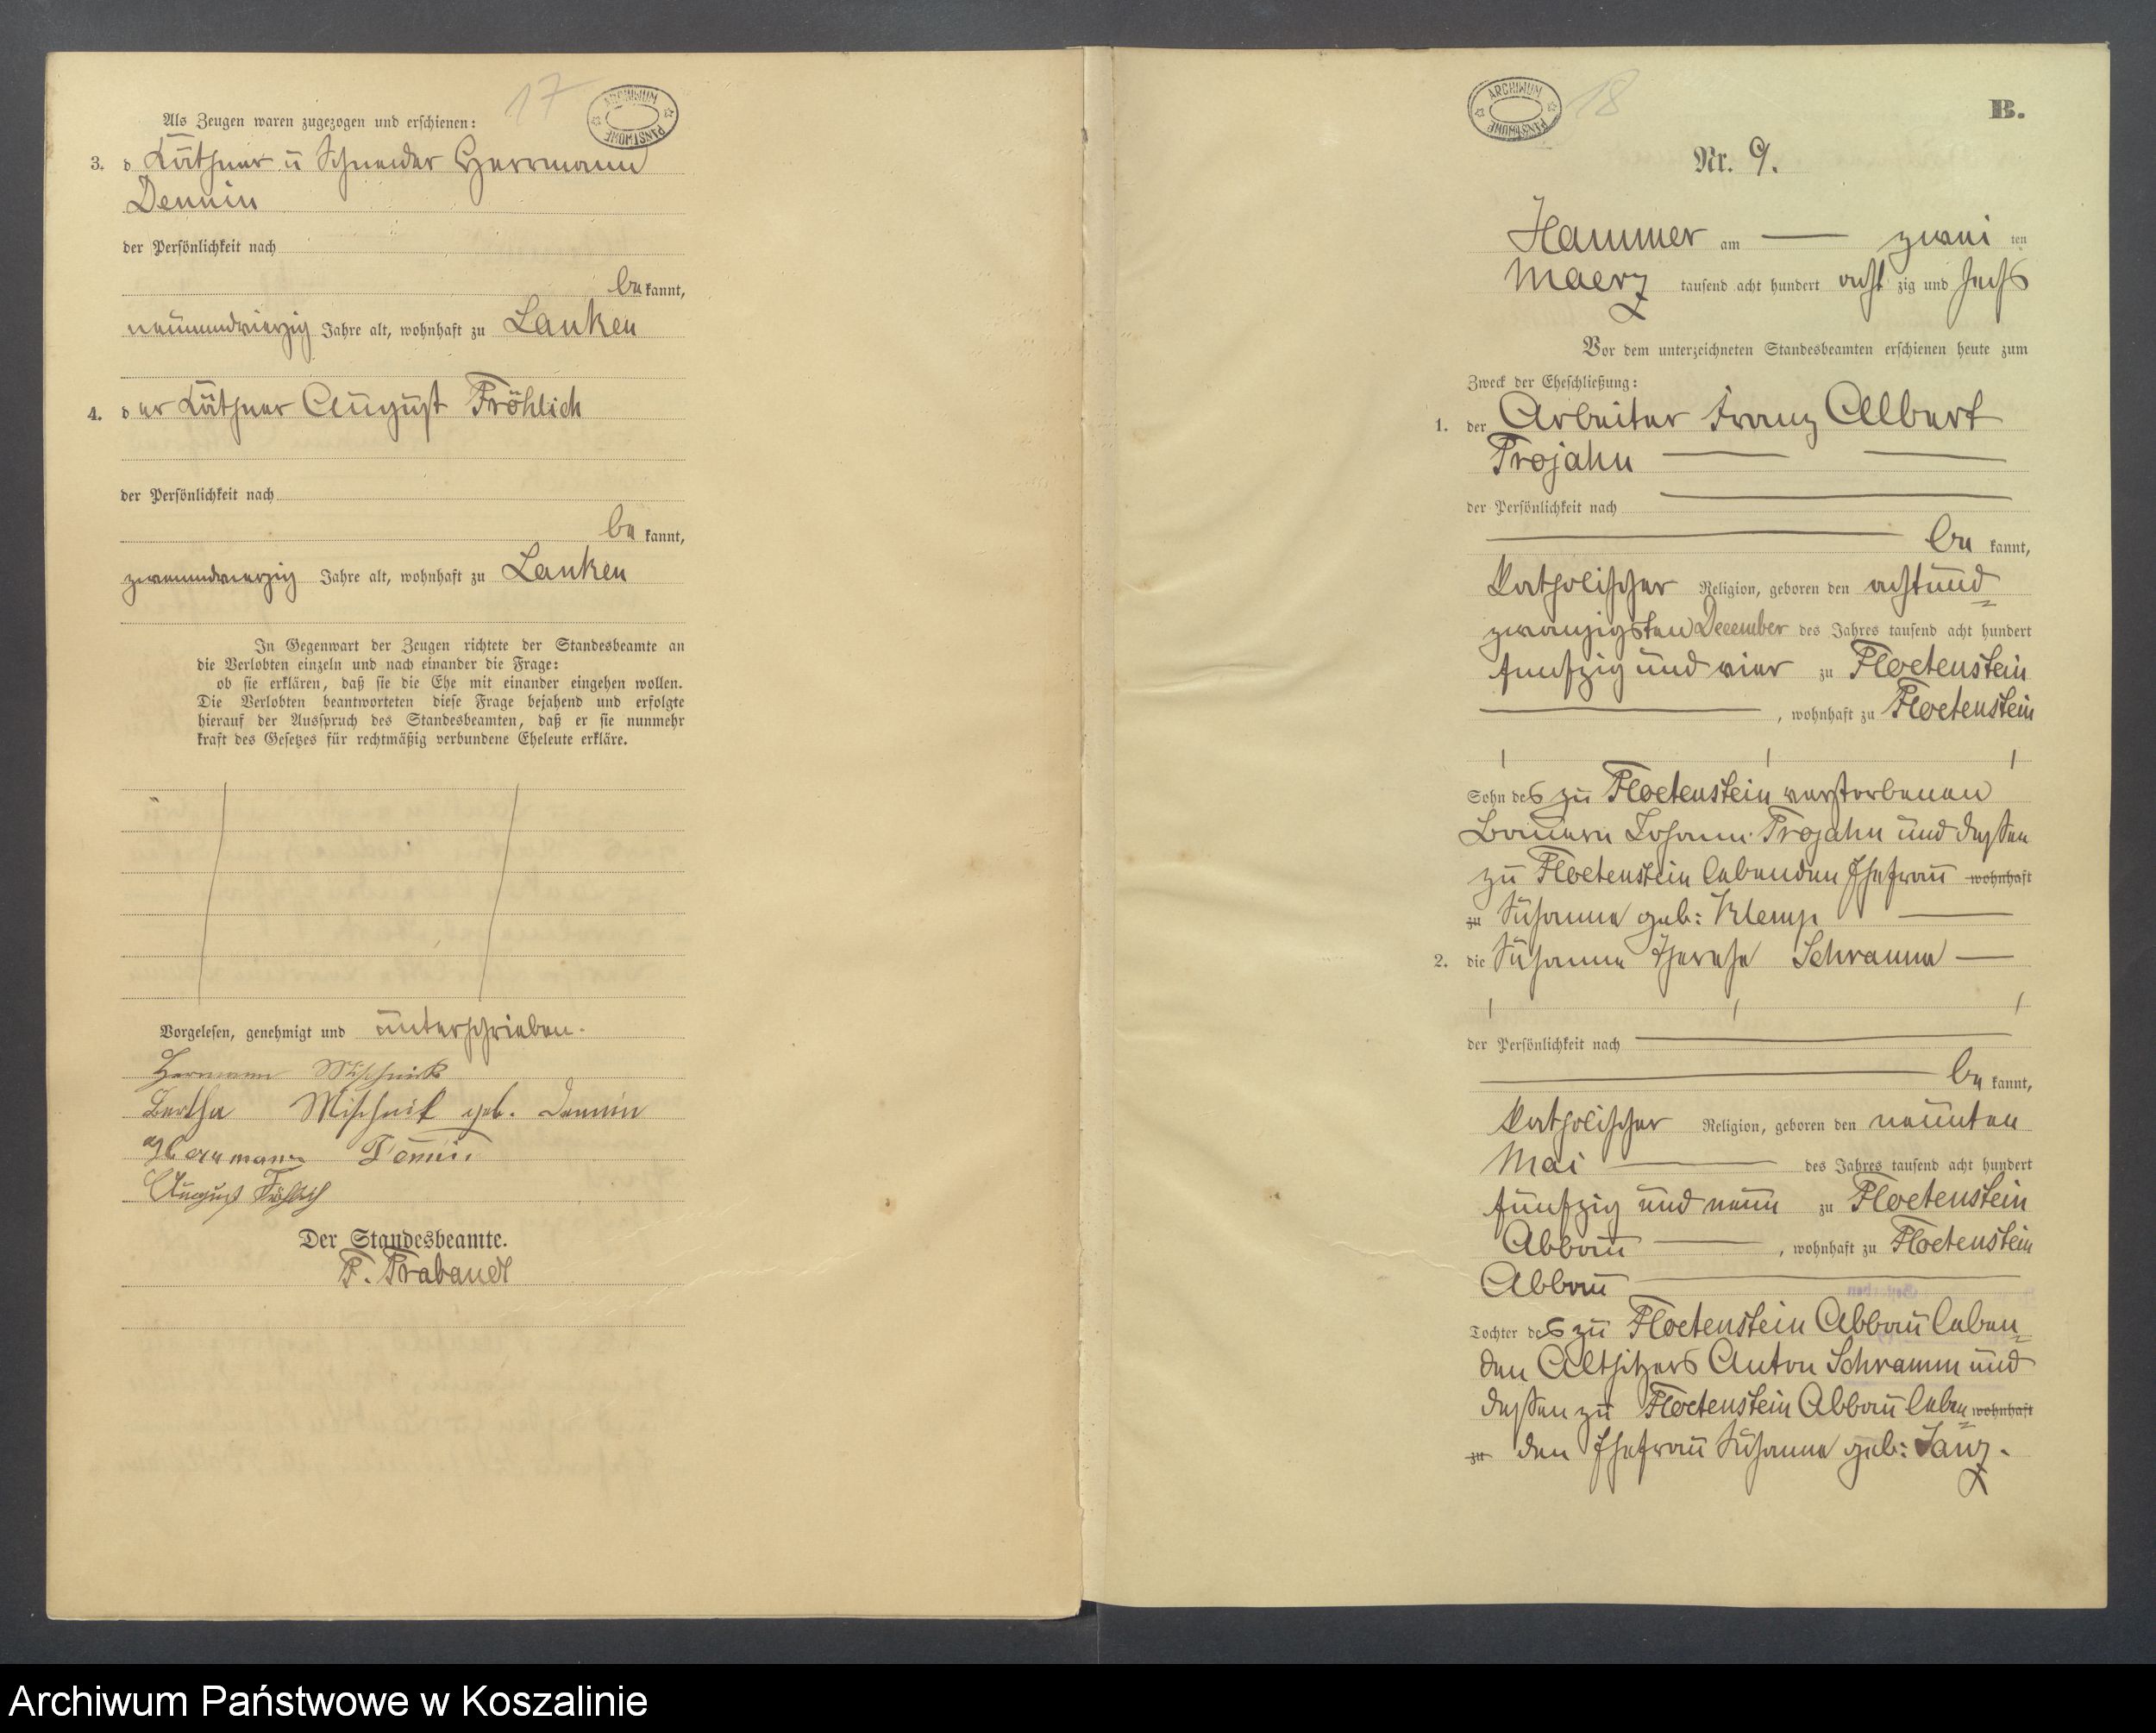 17
ARCHIWUM PAŃSTWOWE
Als Zeugen waren zugezogen und erschienen:
3. d Käthner u Schneider Herrmann
Dennin
der Persönlichkeit nach
be kannt,
neunundvierzig Jahre alt, wohnhaft zu Lanken
4. d er Käthner August Fröhlich
der Persönlichkeit nach
be kannt,
zweiundvierzig Jahre alt, wohnhaft zu Lanken
In Gegenwart der Zeugen richtete der Standesbeamte an
die Verlobten einzeln und nach einander die Frage:
ob sie erklären, daß sie die Ehe mit einander eingehen wollen.
Die Verlobten beantworteten diese Frage bejahend und erfolgte
hierauf der Ausspruch des Standesbeamten, daß er sie nunmehr
kraft des Gesetzes für rechtmäßig verbundene Eheleute erkläre.
Vorgelesen, genehmigt und unterschrieben.
Hermann Mischnick
Bertha Mischnik geb. Dennin
Herrmann Dennin
August Fröhlich
Der Standesbeamte.
F. Trabandt
ARCHIWUM PAŃSTWOWE
18
B.
Nr. 9.
Hammer am — zwei ten
Maerz tausend acht hundert acht zig und sechs
Vor dem unterzeichneten Standesbeamten erschienen heute zum
Zweck der Eheschließung:
1. der Arbeiter Franz Albert
Trojahn
der Persönlichkeit nach
be kannt,
katholischer Religion, geboren den achtund=
zwanzigsten December des Jahres tausend acht hundert
funfzig und vier zu Floetenstein
, wohnhaft zu Floetenstein
Sohn des zu Floetenstein verstorbenen
Bauern Johann Trojahn und dessen
zu Floetenstein lebenden Ehefrau wohnhaft
zu Susanna geb: Klemp
2. die Susanna Therese Schramm
der Persönlichkeit nach
be kannt,
katholischer Religion, geboren den neunten
Mai des Jahres tausend acht hundert
fünfzig und neun zu Floetenstein
Abbau , wohnhaft zu Floetenstein
Abbau
Tochter des zu Floetenstein Abbau leben=
den Altsitzers Anton Schramm und
dessen zu Floetenstein Abbau leben= wohnhaft
zu den Ehefrau Susanna geb: Janz.
Archiwum Państwowe w Koszalinie